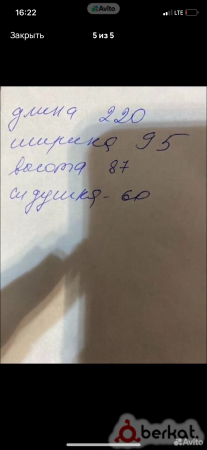 16:22
LTE
Avito
Закрыть
5 из 5
длина 220
ширина 95
высота 87
сидушка - 60
berkat.
Avito